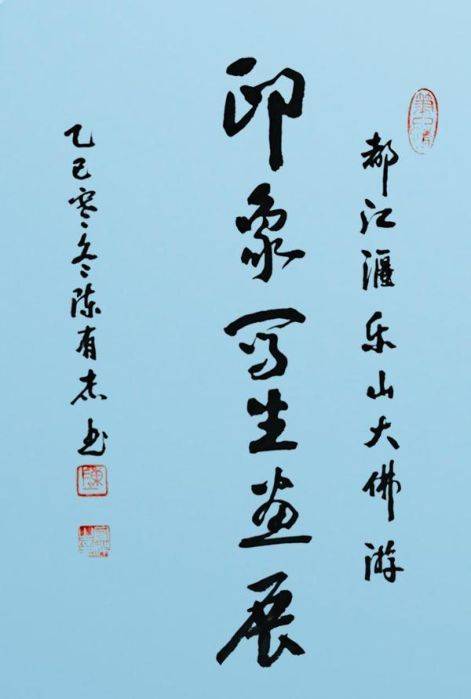 都江湮乐山大佛游
印象写生画展
乙巳寒冬陈有杰书
陳